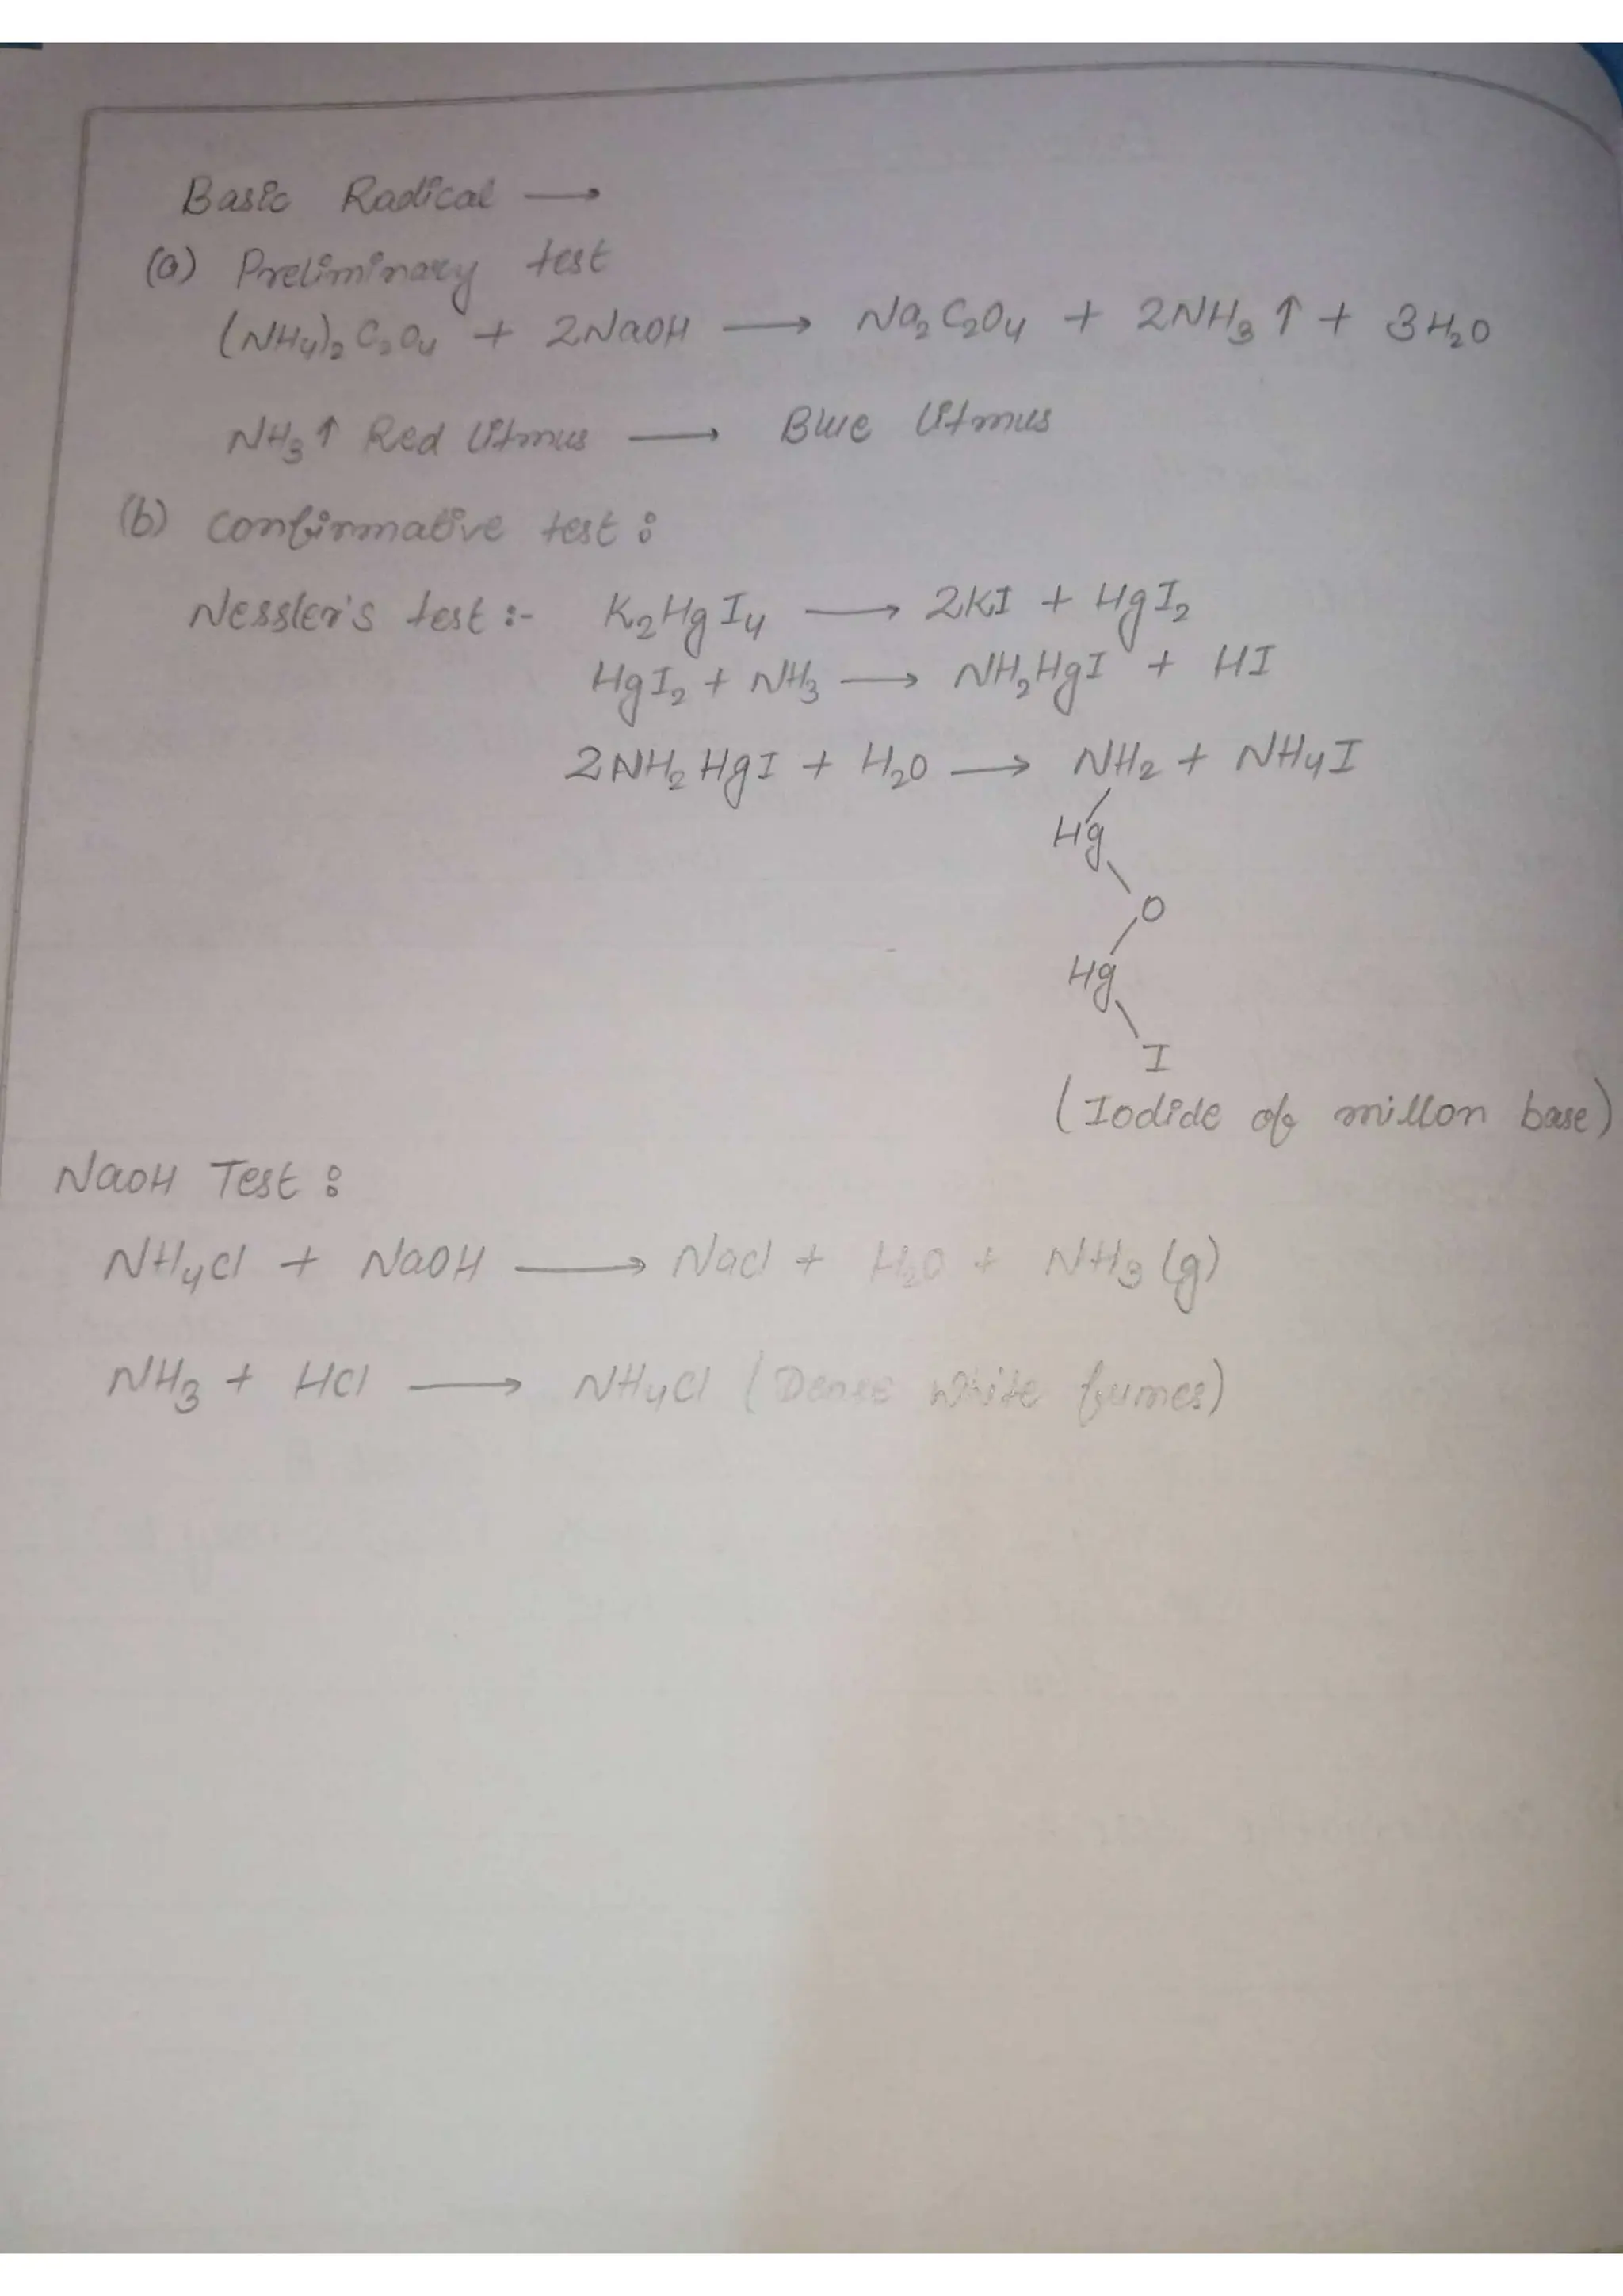 Basic Radical →
(a) Preliminary test
(NH₄)₂C₂O₄ + 2NaOH → Na₂C₂O₄ + 2NH₃↑ + 3H₂O
NH₃↑ Red litmus → Blue litmus
(b) Confirmative test :
Nessler's test :- K₂HgI₄ → 2KI + HgI₂
HgI₂ + NH₃ → NH₂HgI + HI
2NH₂HgI + H₂O → NH₂ + NH₄I
Hg
O
Hg
I
(Iodide of millon base)
NaOH Test :
NH₄Cl + NaOH → NaCl + H₂O + NH₃(g)
NH₃ + HCl → NH₄Cl (Dense white fumes)